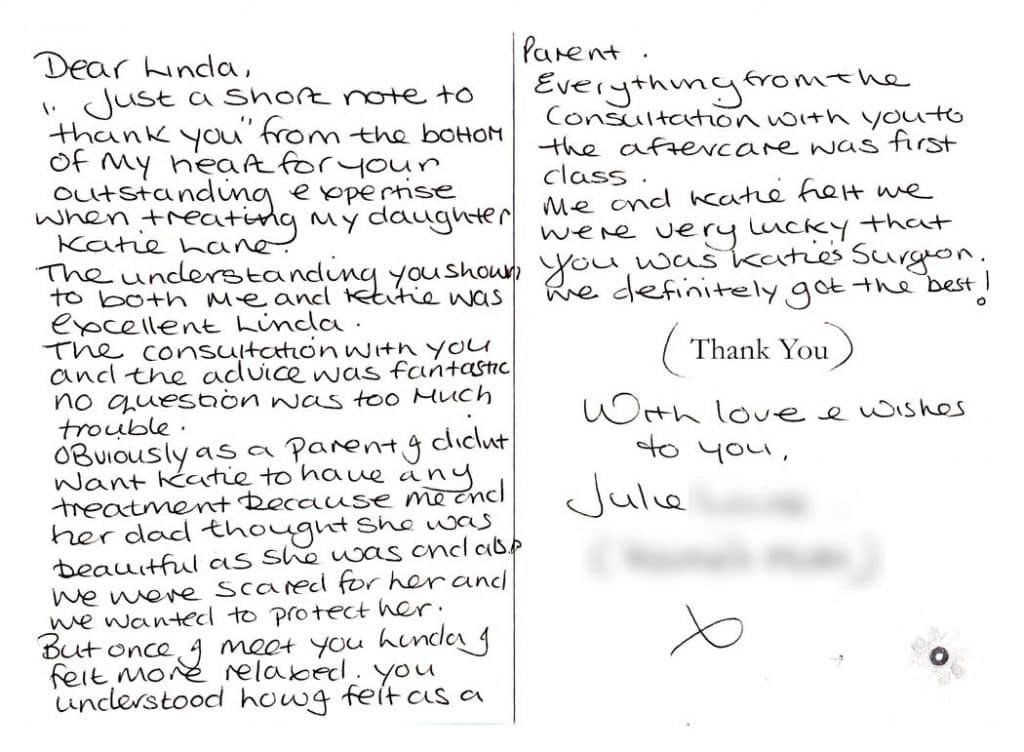 Dear Linda,
". Just a short note to
thank you" from the bottom
of my heart for your
outstanding expertise
when treating my daughter
Katie Lane.
The understanding you shown
to both me and Katie was
excellent Linda.
The consultation with you
and the advice was fantastic
no question was too much
trouble.
Obviously as a parent I didnt
want Katie to have any
treatment because me and
her dad thought she was
beauitful as she was and also
we were scared for her and
we wanted to protect her.
But once I meet you Linda I
felt more relaxed. you
understood how I felt as a
Parent.
Everything from the
Consultation with you to
the aftercare was first
class.
Me and Katie felt we
were very lucky that
you was Katie's Surgeon.
We definitely got the best!
(Thank You)
With love & wishes
to you,
Julie
x